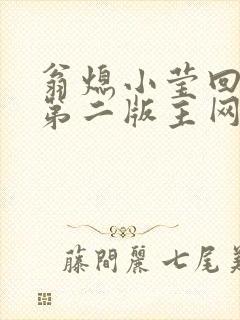 翁熄小莹回
第二版主网
藤間麗七尾